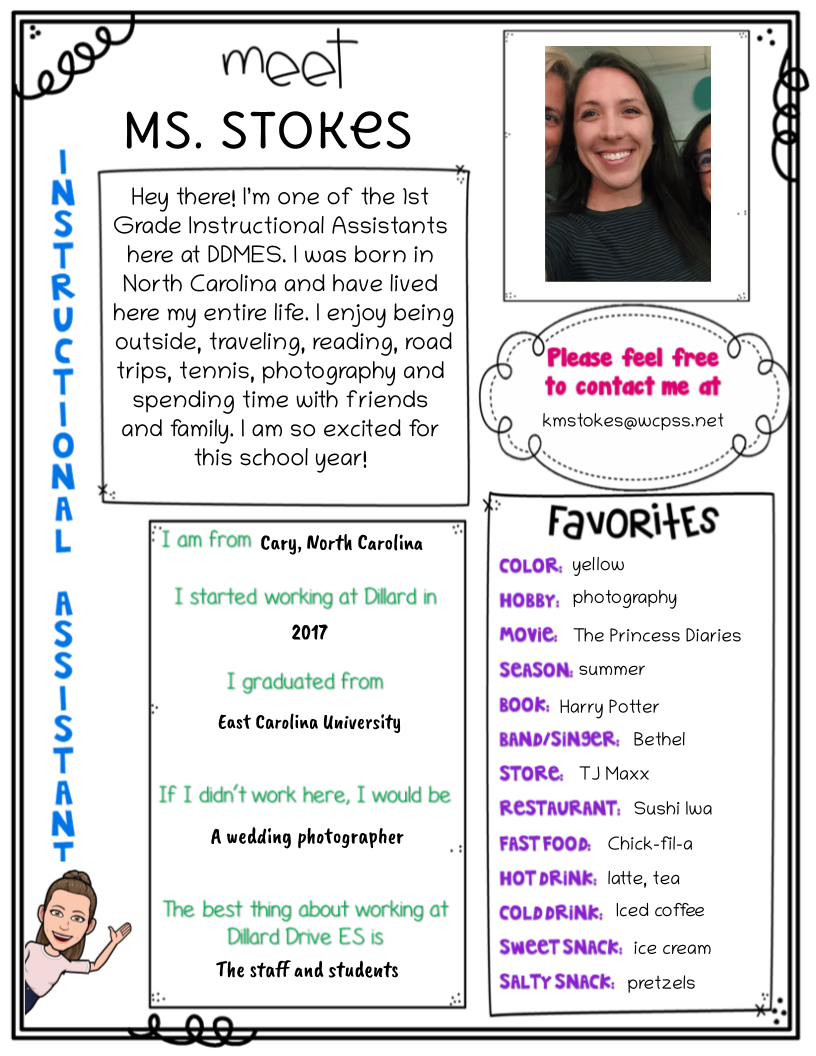 meet
MS. STOKES
INSTRUCTIONAL ASSISTANT
Hey there! I'm one of the 1st
Grade Instructional Assistants
here at DDMES. I was born in
North Carolina and have lived
here my entire life. I enjoy being
outside, traveling, reading, road
trips, tennis, photography and
spending time with friends
and family. I am so excited for
this school year!
Please feel free
to contact me at
kmstokes@wcpss.net
I am from Cary, North Carolina
I started working at Dillard in
2017
I graduated from
East Carolina University
If I didn't work here, I would be
A wedding photographer
The best thing about working at
Dillard Drive ES is
The staff and students
FAVORITES
COLOR: yellow
HOBBY: photography
MOVIE: The Princess Diaries
SEASON: summer
BOOK: Harry Potter
BAND/SINGER: Bethel
STORE: TJ Maxx
RESTAURANT: Sushi Iwa
FAST FOOD: Chick-fil-a
HOT DRINK: latte, tea
COLD DRINK: Iced coffee
SWEET SNACK: ice cream
SALTY SNACK: pretzels